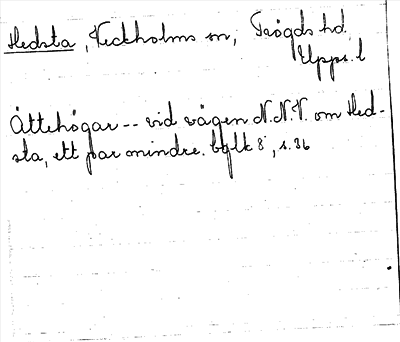 Hedsta, Veckholms sn, Trögds hd.
Upps. l
Ättehögar -- vid vägen N.N.V. om Hed-
sta, ett par mindre. Bglk 8, s. 36